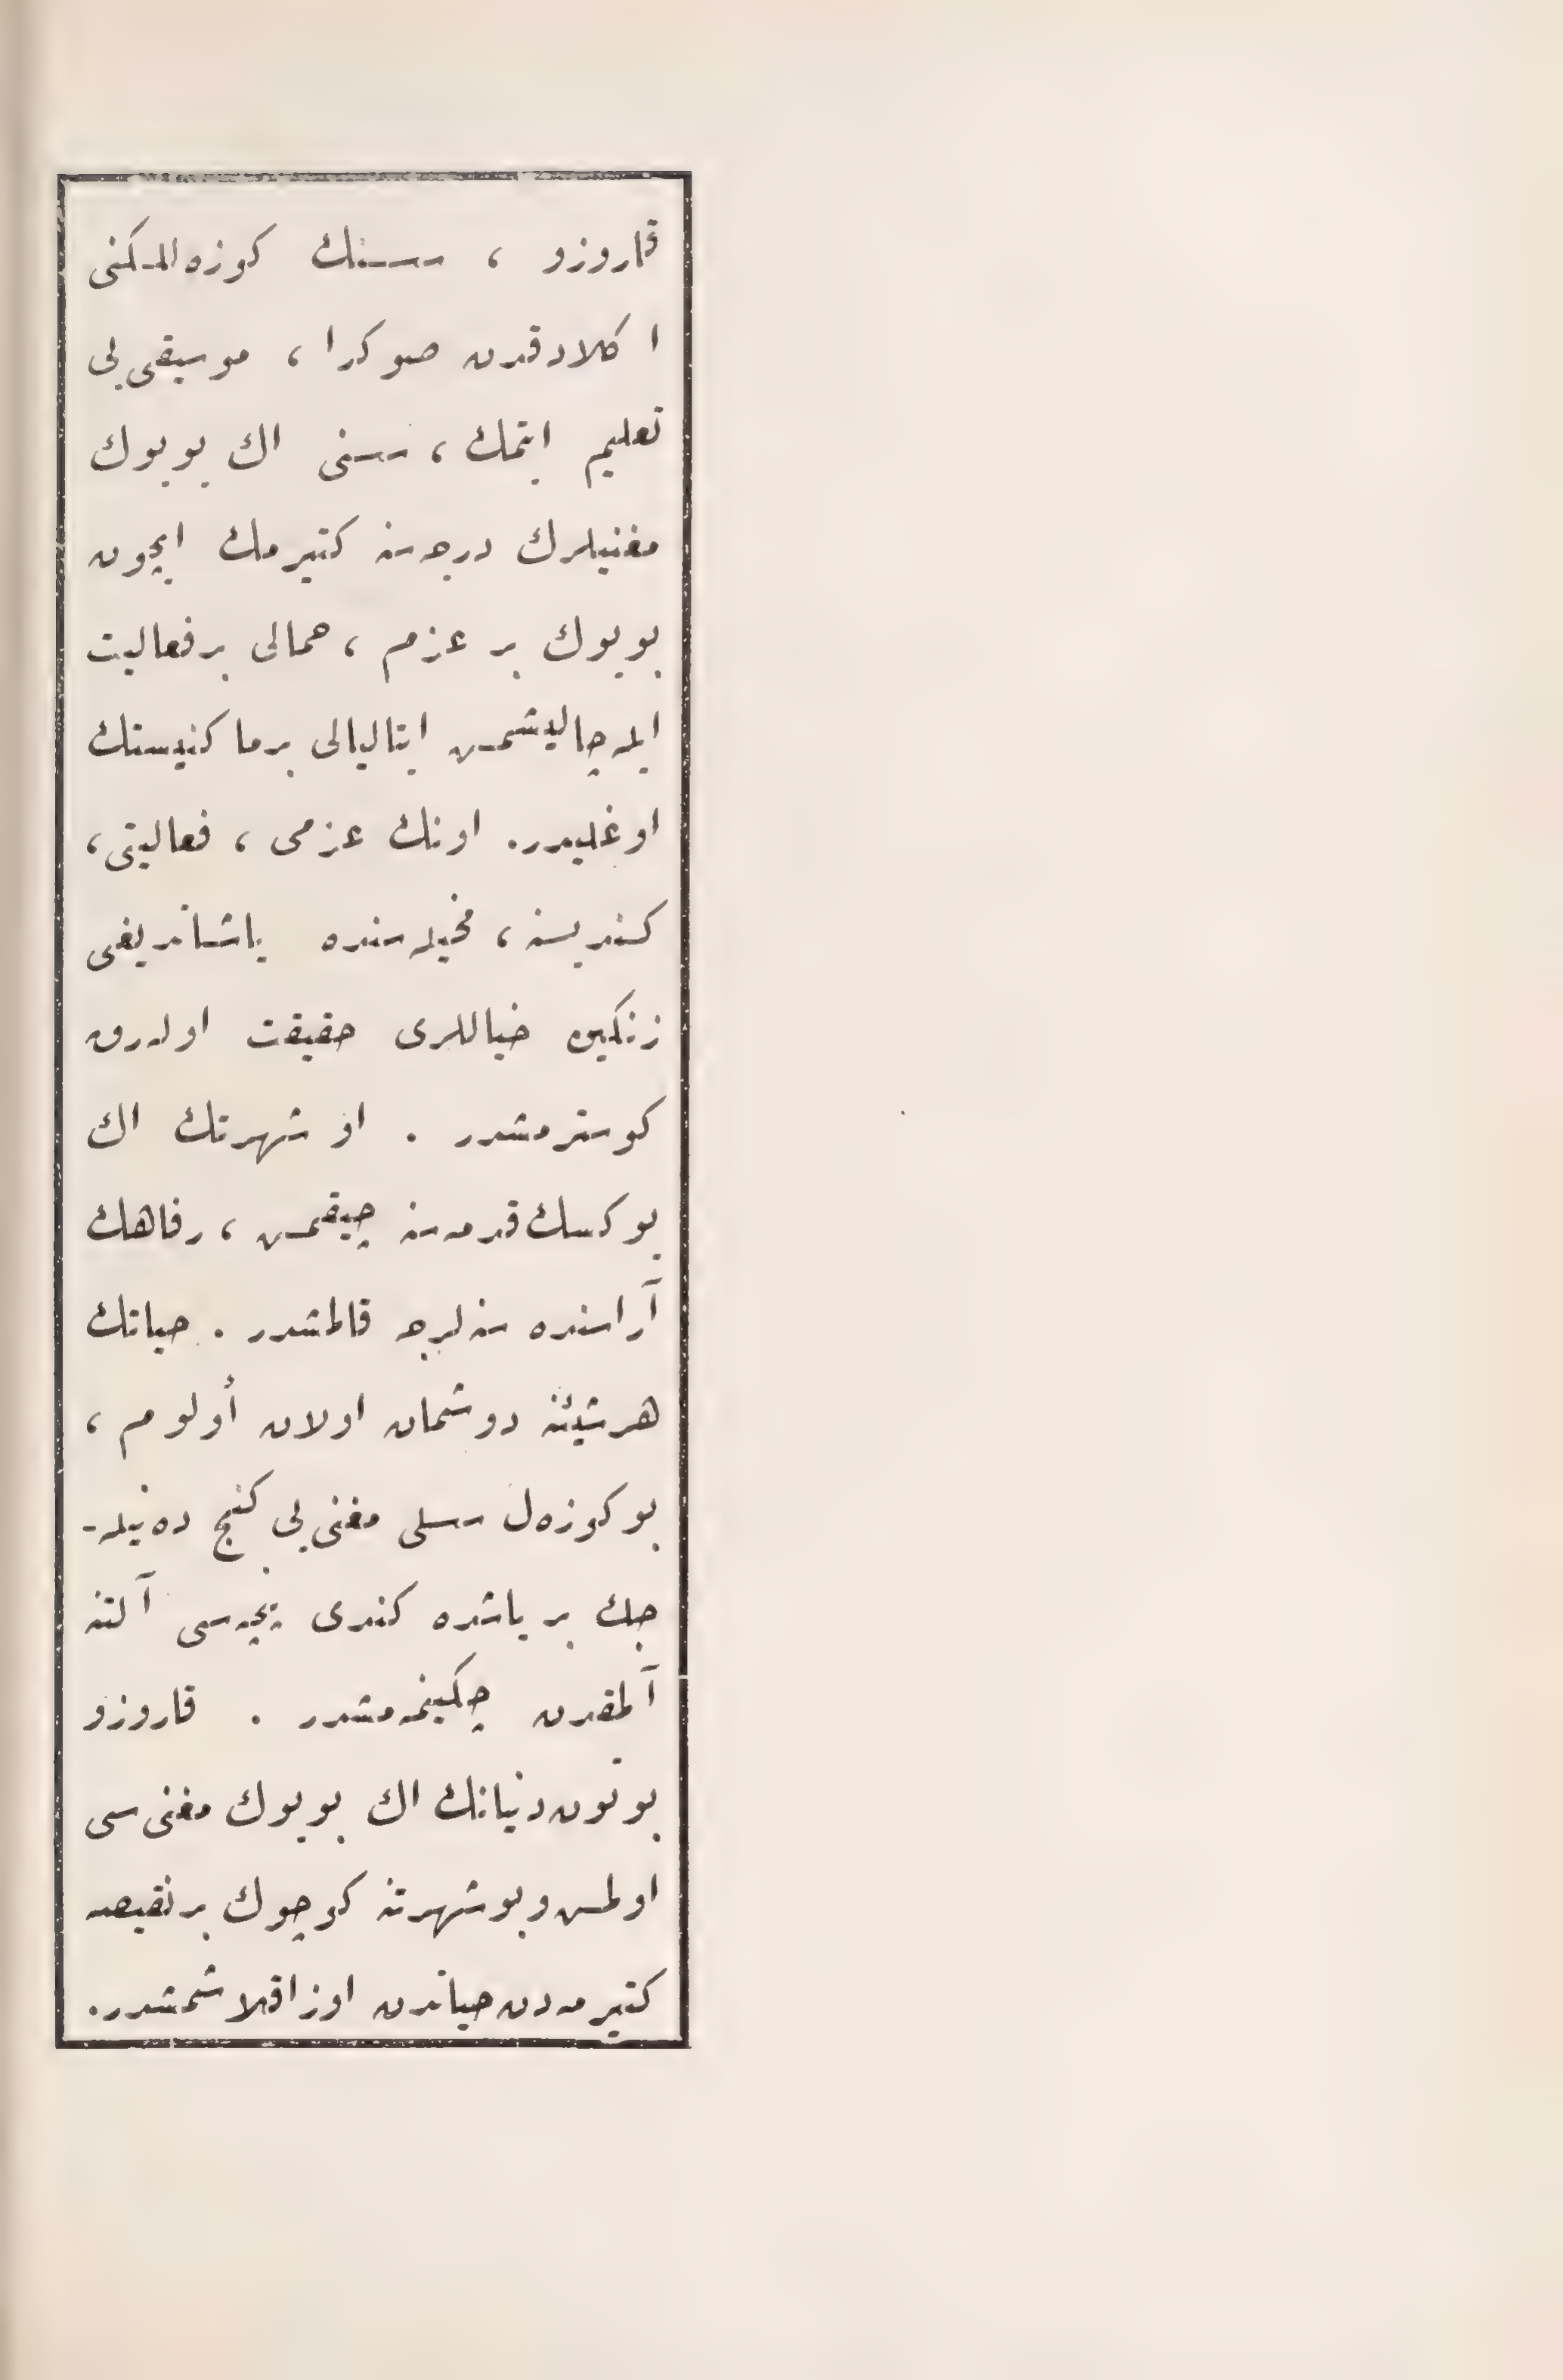 قاروزو ، سسنك كوزه‌للكنى
اكلادقدن صوكرا ، موسيقى‌يى
تعليم ايتمك ، سسنى اك بويوك
مغنيلرك درجه‌سنه كتيرمك ايچون
بويوك بر عزم ، همالى بر فعاليت
ايله چاليشمش ايتاليالى بر ماكنيستك
اوغليدر . اونك عزمى ، فعاليتى ،
كنديسنه ، مخيله‌سنده ياشاتديغى
زنكين خياللرى حقيقت اوله‌رق
كوسترمشدر . او شهرتك اك
يوكسك قدمه‌سنه چيقمش ، رفاهك
آراسنده سنه‌لرجه قالمشدر . حياتك
هر شيئنه دوشمان اولان أولوم ،
بو كوزه‌ل سسلى مغنى‌يى كنج ده‌نيله-
جك بر ياشده كندى پنچه‌سى آلتنه
آلمقدن چكينمه‌مشدر . قاروزو
بوتون دنيانك اك بويوك مغنى‌سى
اولمش و بو شهرتنه كوچوك بر نقيصه
كتيرمه‌دن حياتدن اوزاقلاشمشدر .